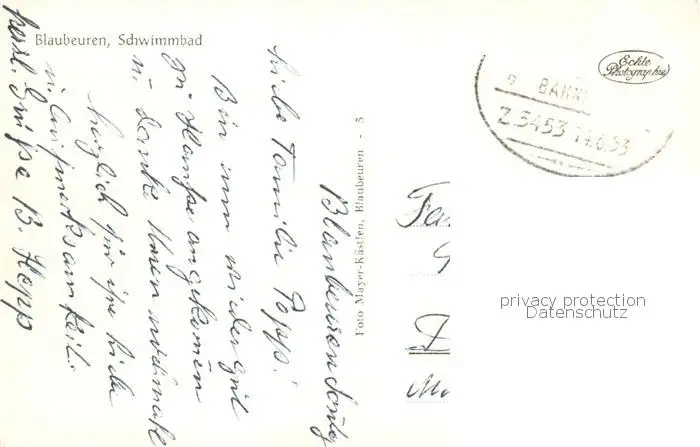 Blaubeuren, Schwimmbad
Echte
Photographie
BAHN
Z.3453 14.6.53
Foto Mayer-Kästlen, Blaubeuren - 3
Blaubeuren
Liebe Familie Popp!
Bin nun wieder gut
zu Hause angekomen
u. danke Ihnen nochmals
herzlich für ihre liebe
u. Aufmerksamkeit.
herzl. Grüße B. Hepp
Fa
privacy protection
Datenschutz